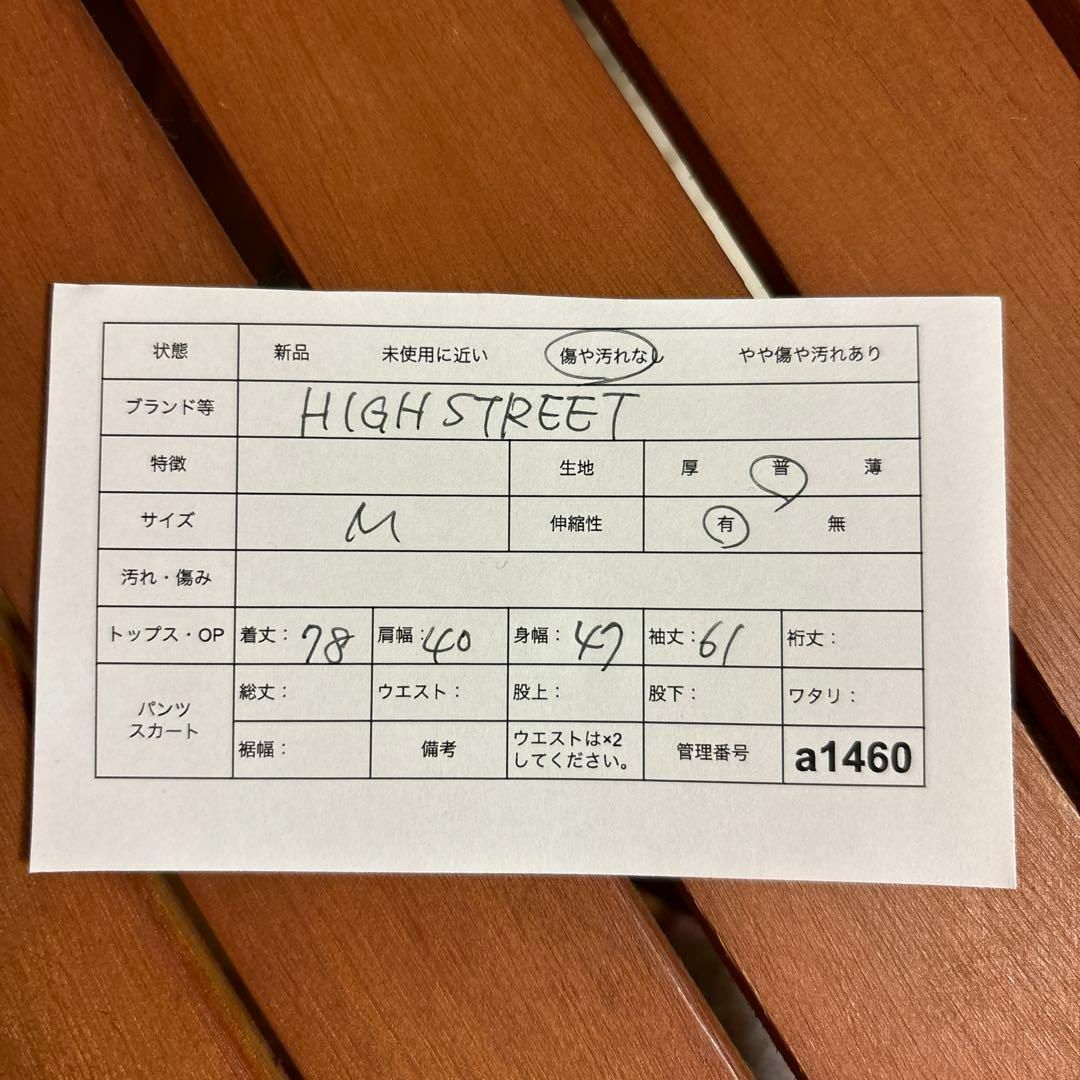 状態 新品 未使用に近い 傷や汚れなし やや傷や汚れあり
ブランド等 HIGH STREET
特徴 生地 厚 普 薄
サイズ M 伸縮性 有 無
汚れ・傷み
トップス・OP 着丈：78 肩幅：40 身幅：47 袖丈：61 裄丈：
パンツ
スカート
総丈： ウエスト： 股上： 股下： ワタリ：
裾幅： 備考 ウエストは×2
してください。 管理番号 a1460